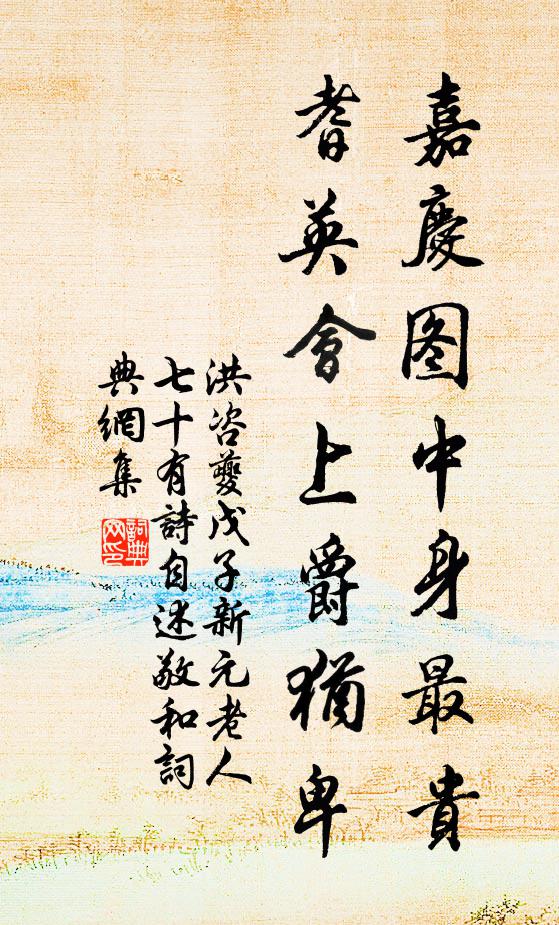 嘉慶图中身最貴
耆英會上爵猶卑
洪咨夔戊子新元老人
七十有詩自述敬和詞
典網集
詞典网印